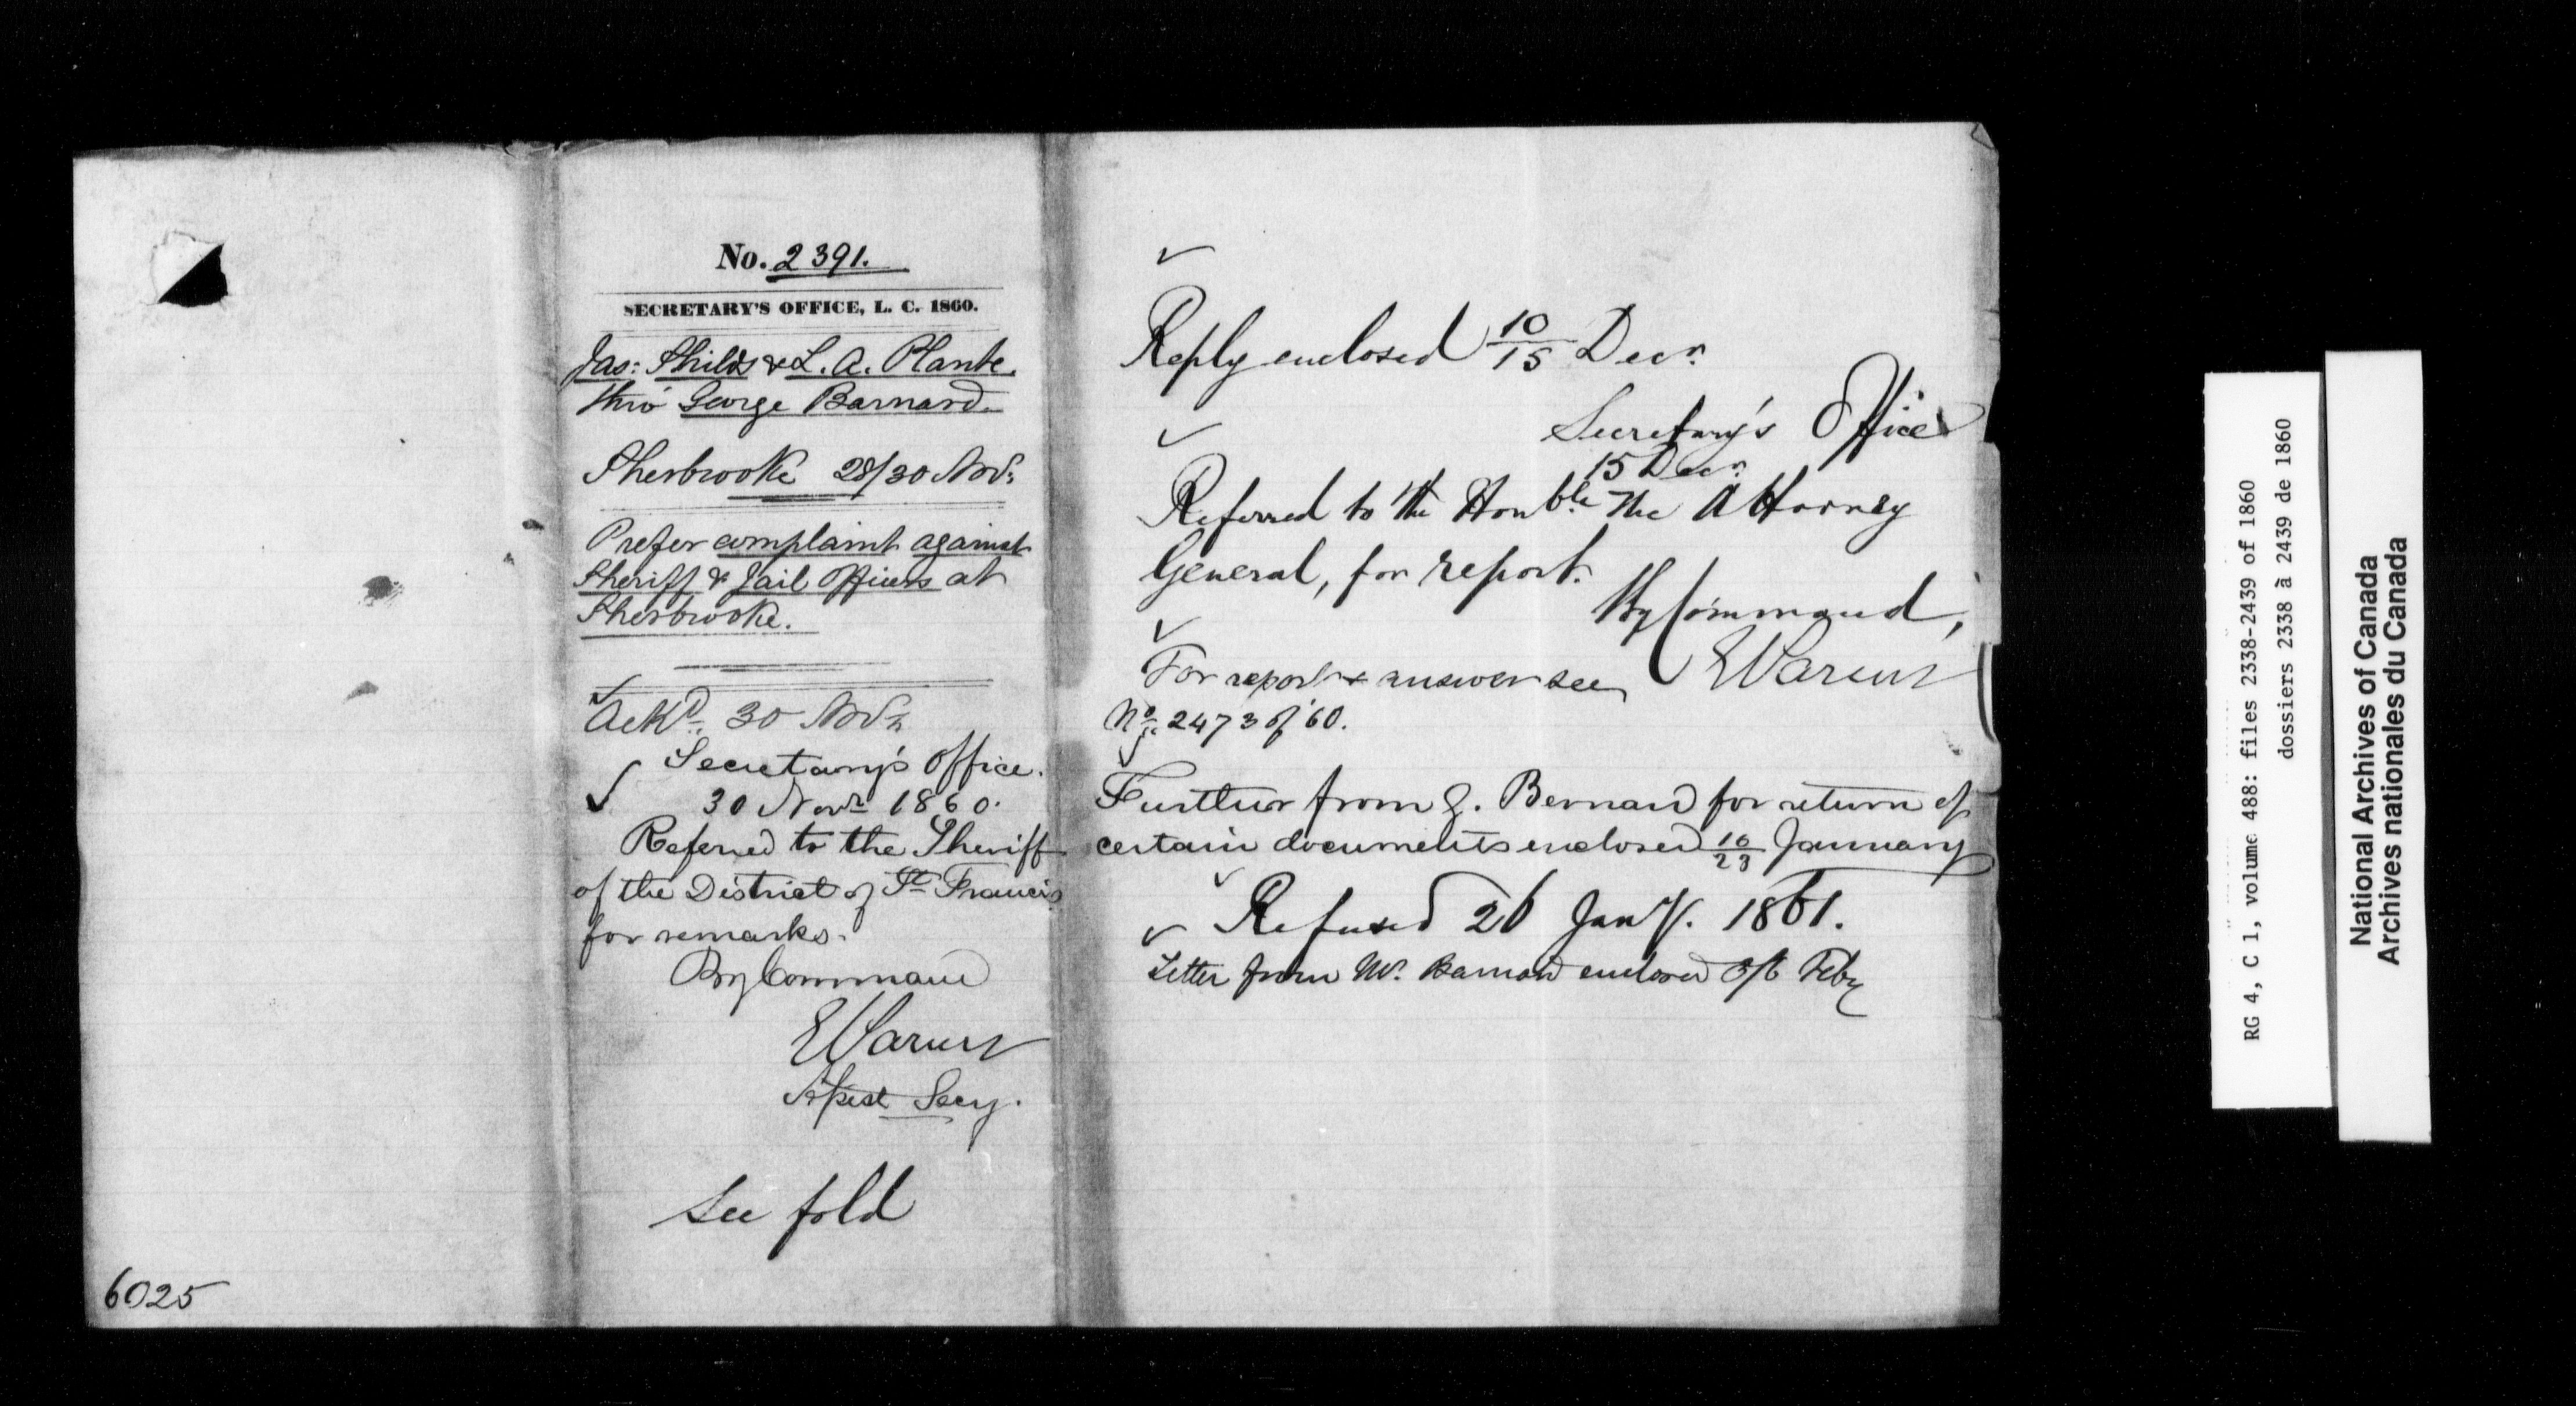 No. 2391.
SECRETARY'S OFFICE, L. C. 1860.
Jas: Shilds & L. A. Plante.
thro' George Barnard.
Sherbrooke 28/30 Novr.
Prefer complaint against
Sheriff & Jail Officers at
Sherbrooke.
Ackd. 30 Novr.
Secretary's Office.
30 Novr 1860.
Referred to the Sheriff
of the District of St Francis
for remarks.
By Command
Asist Secy.
See fold
6025
Reply enclosed 10/15 Decr.
Secretary's Office
15 Decr.
Referred to the Honble. The Attorney
General, for report.
By Command,
For report & answer see
No. 2473 of '60.
Further from G. Bernard for return of
certain documents enclosed 16/23 January
Refused 26 Jany. 1861.
Letter from Mr. Barnard enclosed 5/6 Feby
RG 4, C 1, volume 488: files 2338-2439 of 1860
dossiers 2338 à 2439 de 1860
National Archives of Canada
Archives nationales du Canada